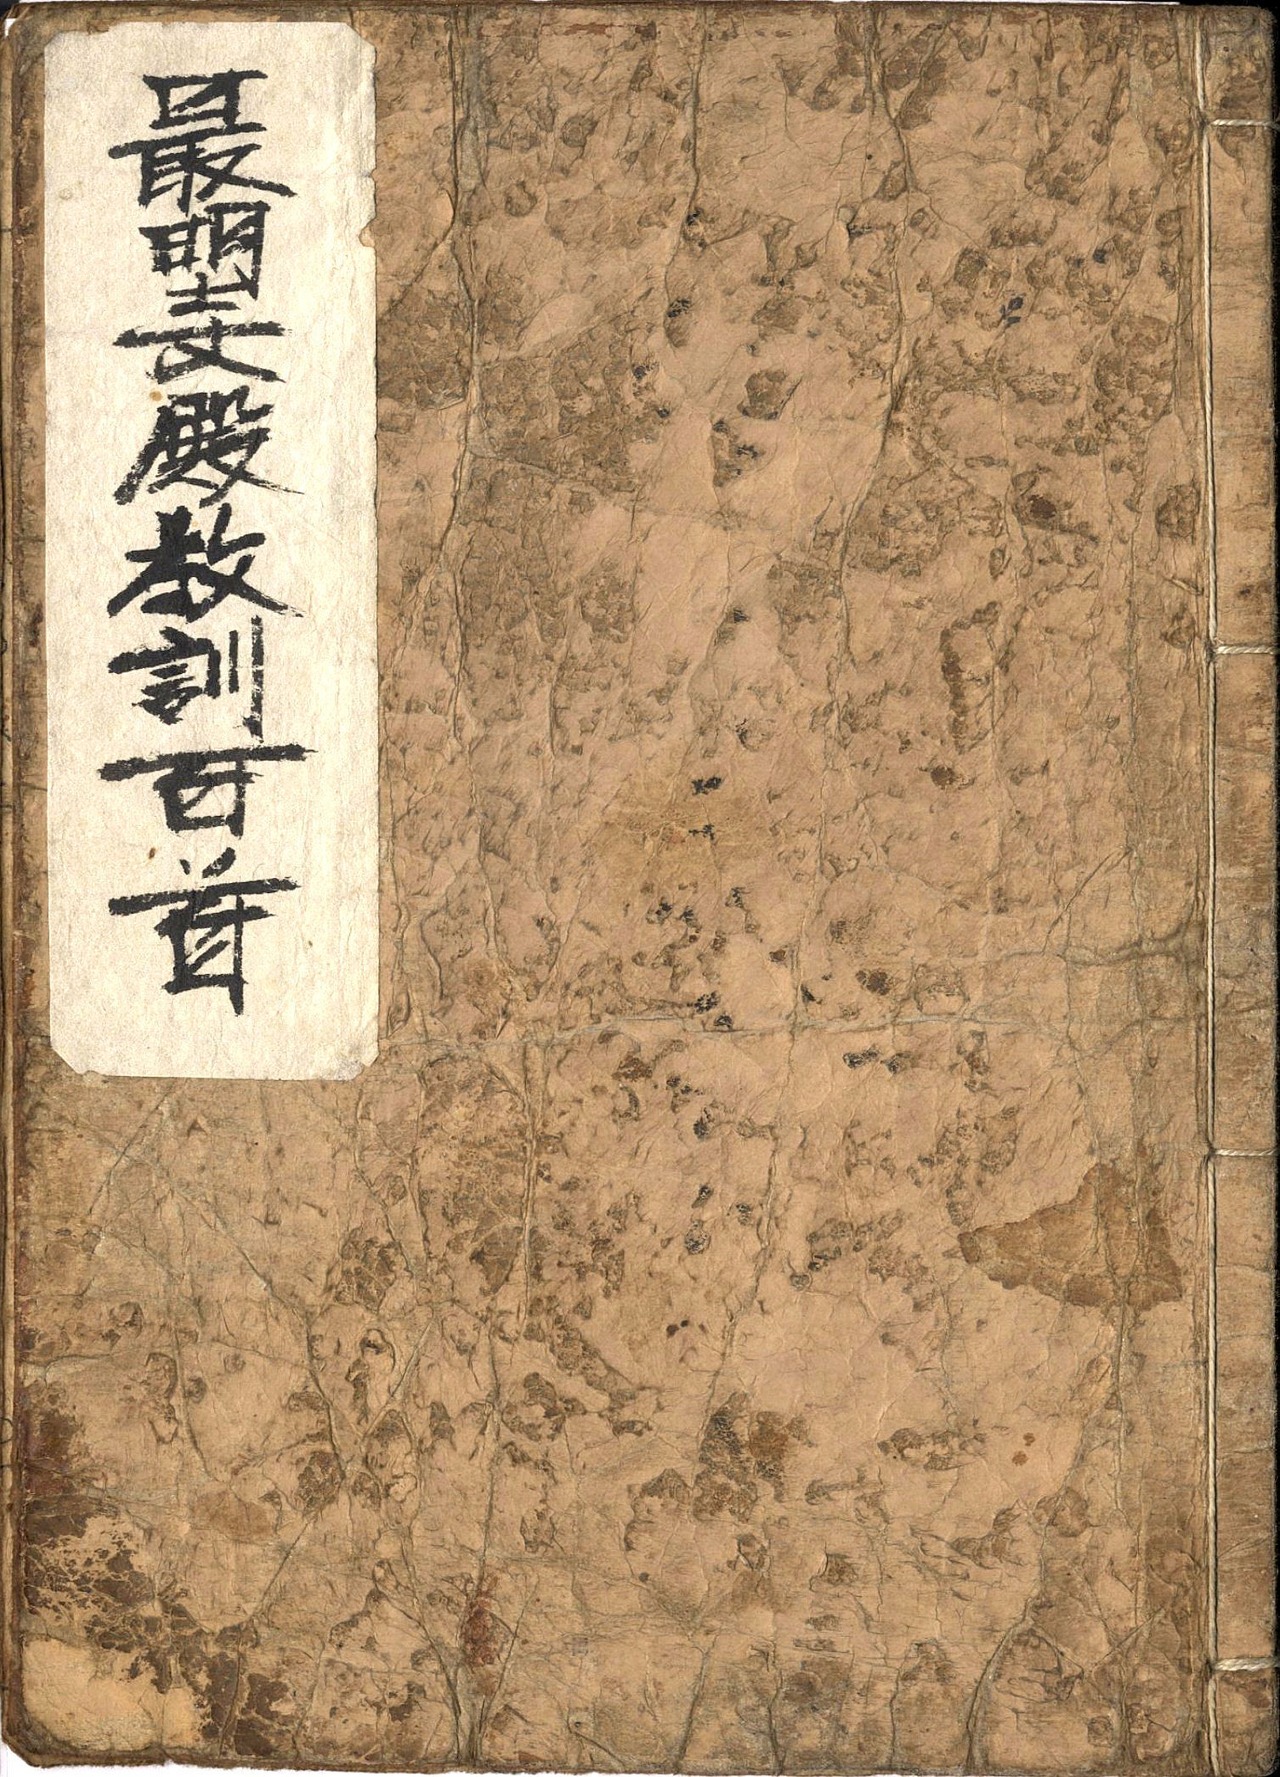 最明寺殿教訓百首